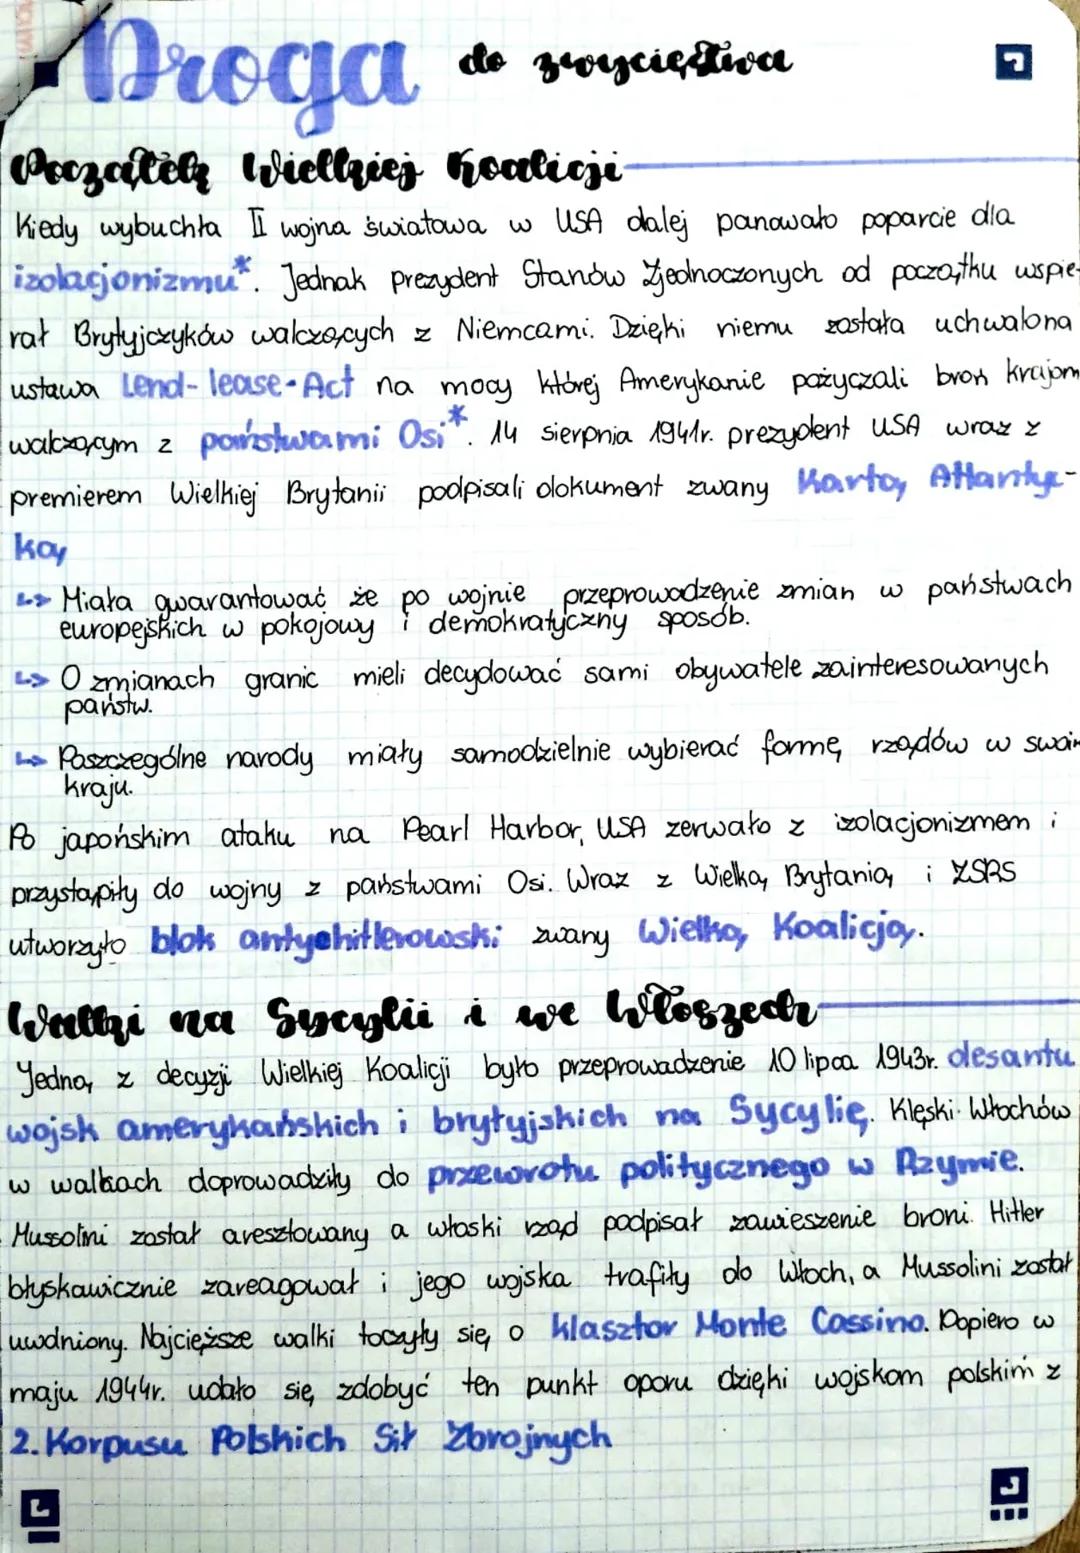 Droga do zwycięstwa
Początek Wielkiej Koalicji
Kiedy wybuchła II wojna światowa w USA dalej panowało poparcie dla
izolacjonizmu*. Jednak prezydent Stanów Zjednoczonych od początku wspie-
rał Brytyjczyków walczących z Niemcami. Dzięki niemu została uchwalona
ustawa Lend-lease-Act na mocy której Amerykanie pożyczali broń krajom
walczącym z państwami Osi*. 14 sierpnia 1941r. prezydent USA wraz z
premierem Wielkiej Brytanii podpisali dokument zwany Kartą Atlantyc-
ką
↳ Miała gwarantować że po wojnie przeprowadzenie zmian w państwach
europejskich w pokojowy i demokratyczny sposób.
↳ O zmianach granic mieli decydować sami obywatele zainteresowanych
państw.
↳ Poszczególne narody miały samodzielnie wybierać formę rządów w swoim
kraju.
Po japońskim ataku na Pearl Harbor, USA zerwało z izolacjonizmem i
przystąpiły do wojny z państwami Osi. Wraz z Wielką Brytanią i ZSRS
utworzyło blok antyhitlerowski zwany Wielką Koalicją.
Walki na Sycylii i we Włoszech
Jedną z decyzji Wielkiej Koalicji było przeprowadzenie 10 lipca 1943r. desantu
wojsk amerykańskich i brytyjskich na Sycylię. Klęski Włochów
w walkach doprowadziły do przewrotu politycznego w Rzymie.
Mussolini został aresztowany a włoski rząd podpisał zawieszenie broni. Hitler
błyskawicznie zareagował i jego wojska trafiły do Włoch, a Mussolini został
uwolniony. Najcięższe walki toczyły się o klasztor Monte Cassino. Dopiero w
maju 1944r. udało się zdobyć ten punkt oporu dzięki wojskom polskim z
2. Korpusu Polskich Sił Zbrojnych